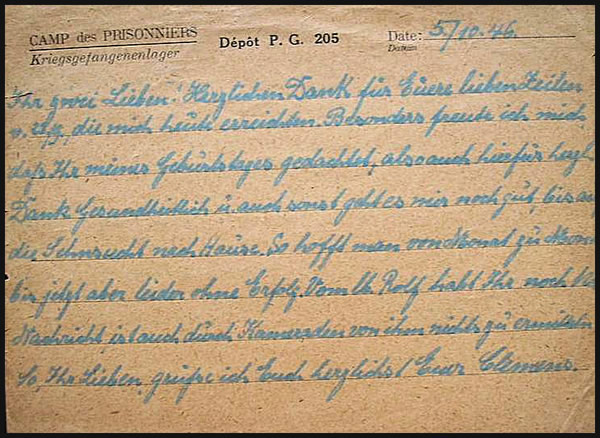 CAMP des PRISONNIERS
Kriegsgefangenenlager
Dépôt P. G. 205
Date: 5/10.46.
Datum
Ihr zwei Lieben! Herzlichen Dank für Euere lieben Zeilen
v. die mich heute erreichten. Besonders freute ich mich
daß Ihr meines Geburtstages gedachtet, also auch hiefür herzl.
Dank. Gesundheitlich u. auch sonst geht es mir noch gut, bis auf
die Sehnsucht nach Hause. So hofft man von Monat zu Mon
bis jetzt aber leider ohne Erfolg. Vom lb. Rolf habt Ihr noch
Nachricht ist auch durch Kameraden von ihm nichts zu ermitteln
So, Ihr Lieben, grüße ich Euch herzlichst Euer Clemens.